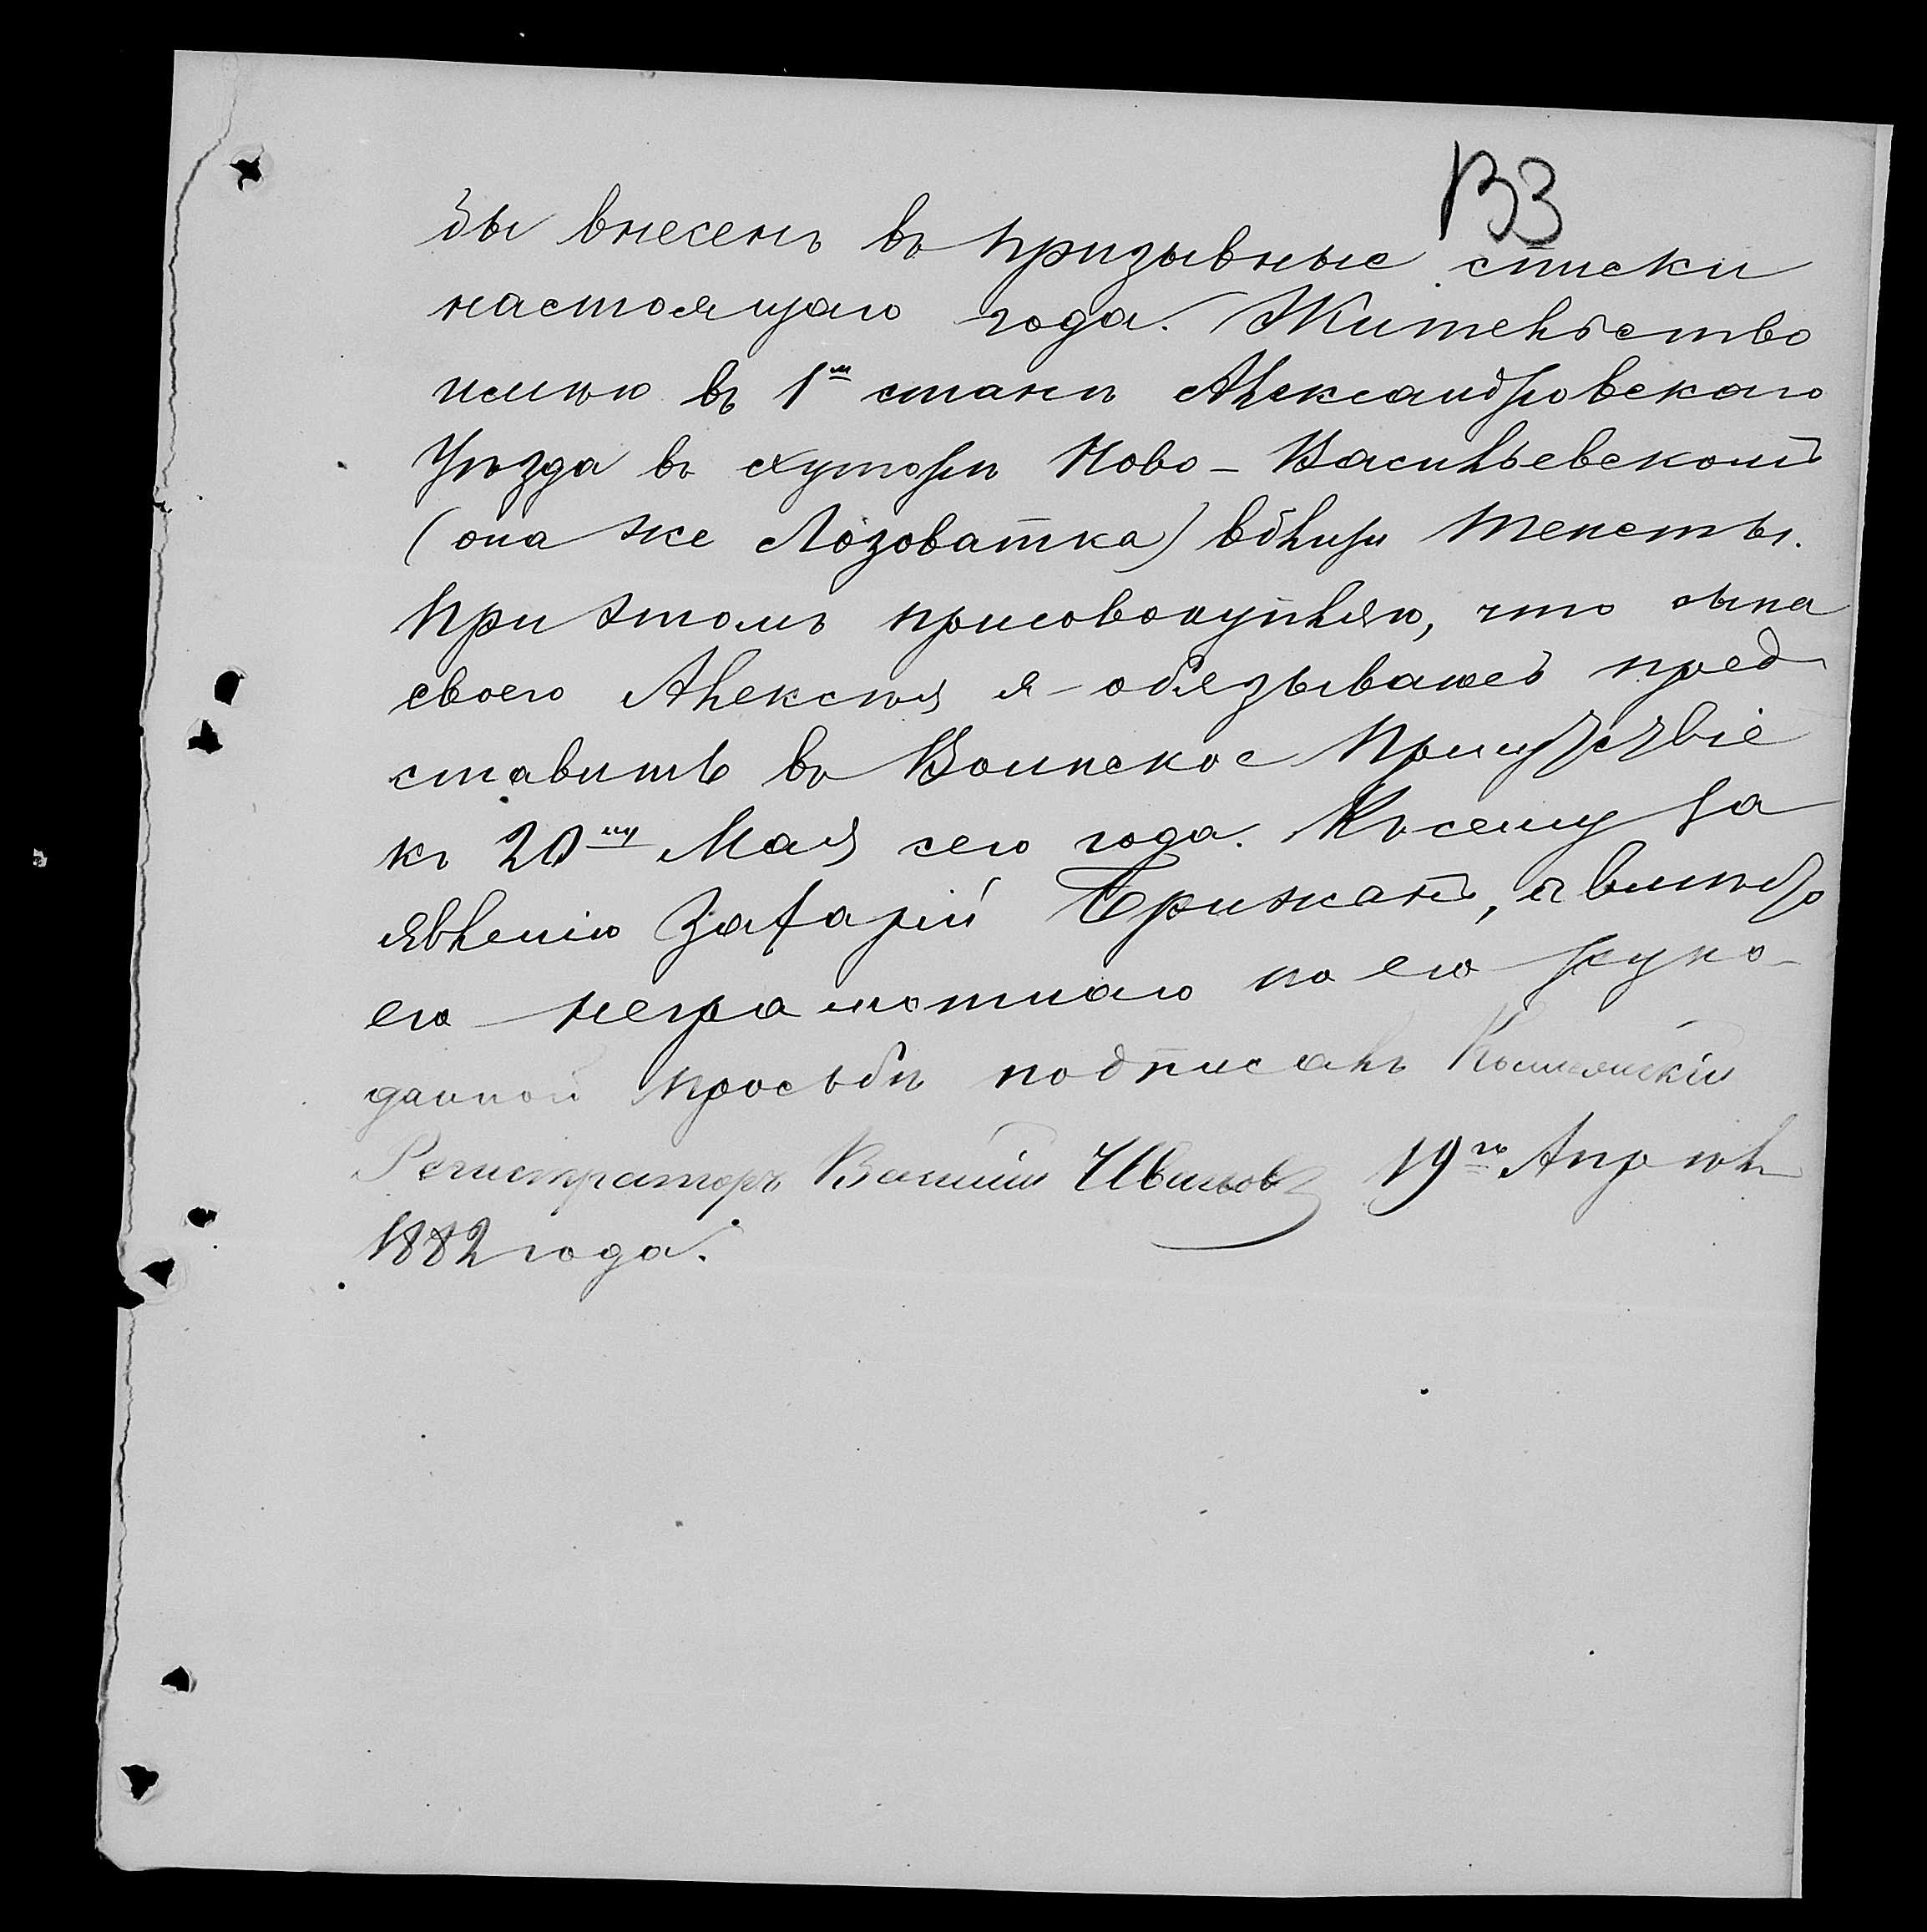 133
бы внесенъ въ призывные списки
настоящаго года. Жительство
имѣю въ 1м станѣ Александровскаго
Уѣзда въ хуторѣ Ново-Васильевскомъ
(она же Лозоватка) вблизи
При этомъ присовокупляю, что сына
своего Алексѣя я обязываюсь пред
ставить въ Воинское Присутствіе
къ 20му Мая сего года. Къ сему за
явленію Захарій Брижанъ, а вмѣсто
его неграмотнаго по его руко-
данной просьбѣ подписалъ
Регистраторъ Василій Ивановъ 19го Апрѣл
1882 года.